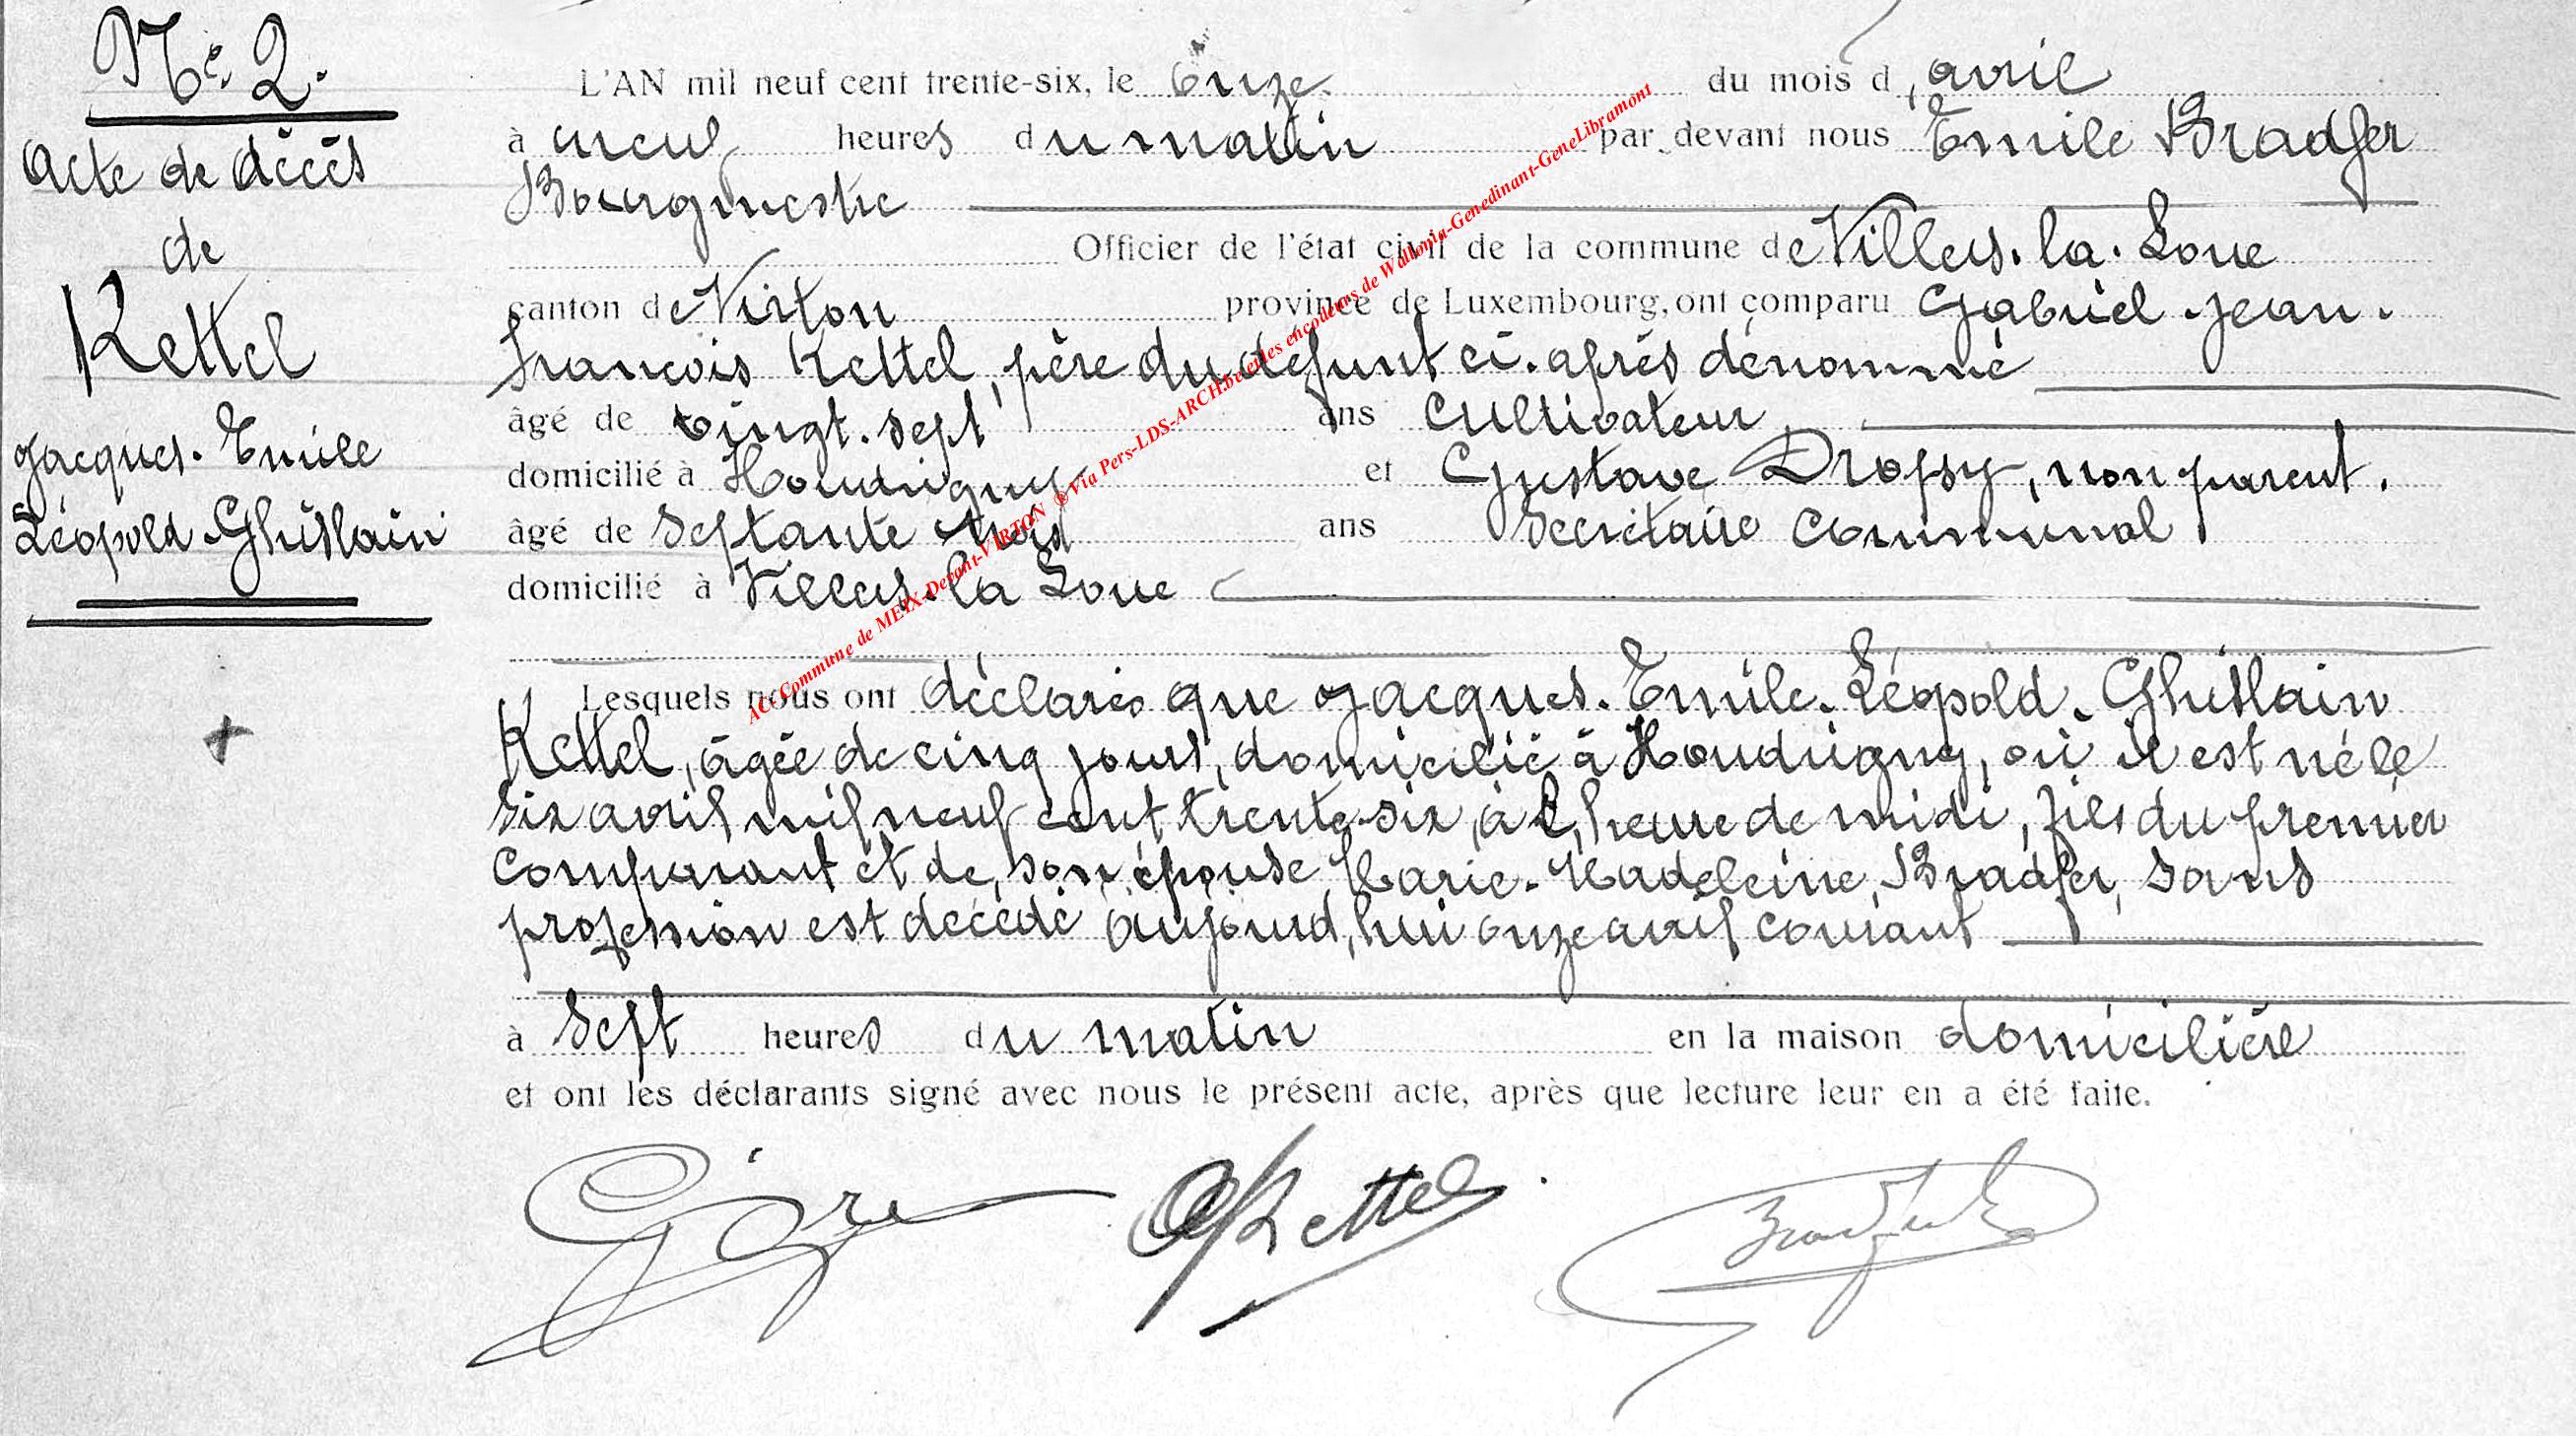 N° 2.
Acte de décès
de
Kettel
Jacques. Emile
Léopold. Ghislain
L'AN mil neuf cent trente-six, le onze du mois d'avril
à neuf heures du matin par devant nous Emile Bradfer
Bourgmestre
Officier de l'état civil de la commune de Villers. la. Loue
canton de Virton province de Luxembourg, ont comparu Gabriel. Jean.
François Kettel, père du défunt ci. après dénommé
âgé de vingt. sept ans Cultivateur
domicilié à Houdrigny et Gustave Dropsy, non parent.
âgé de septante trois ans Secrétaire Communal
domicilié à Villers. la Loue
Lesquels nous ont déclarés que Jacques. Emile. Léopold. Ghislain
Kettel, âgée de cinq jours, domicilié à Houdrigny, où il est né le
six avril mil neuf cent trente-six, à l'heure de midi, fils du premier
comparant et de son épouse Marie. Madeleine Bradfer, sans
profession est décédé aujourd'hui onze avril courant
à sept heures du matin en la maison domicilière
et ont les déclarants signé avec nous le présent acte, après que lecture leur en a été faite.
Kettel
ACC Commune de MEIX-Devant-VIRTON ® Via Pers-LDS-ARCH.be et les encodeurs de Wallonia-Genedinant-GeneLibramont